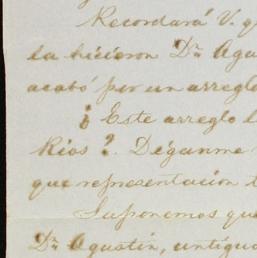 Recordará V. q
la hicieron Dn. Agu
acabó por un arregl
¿Este arreglo l
Rios? Díganme
que representación t
Suponemos que
Dn. Agustín, antigu